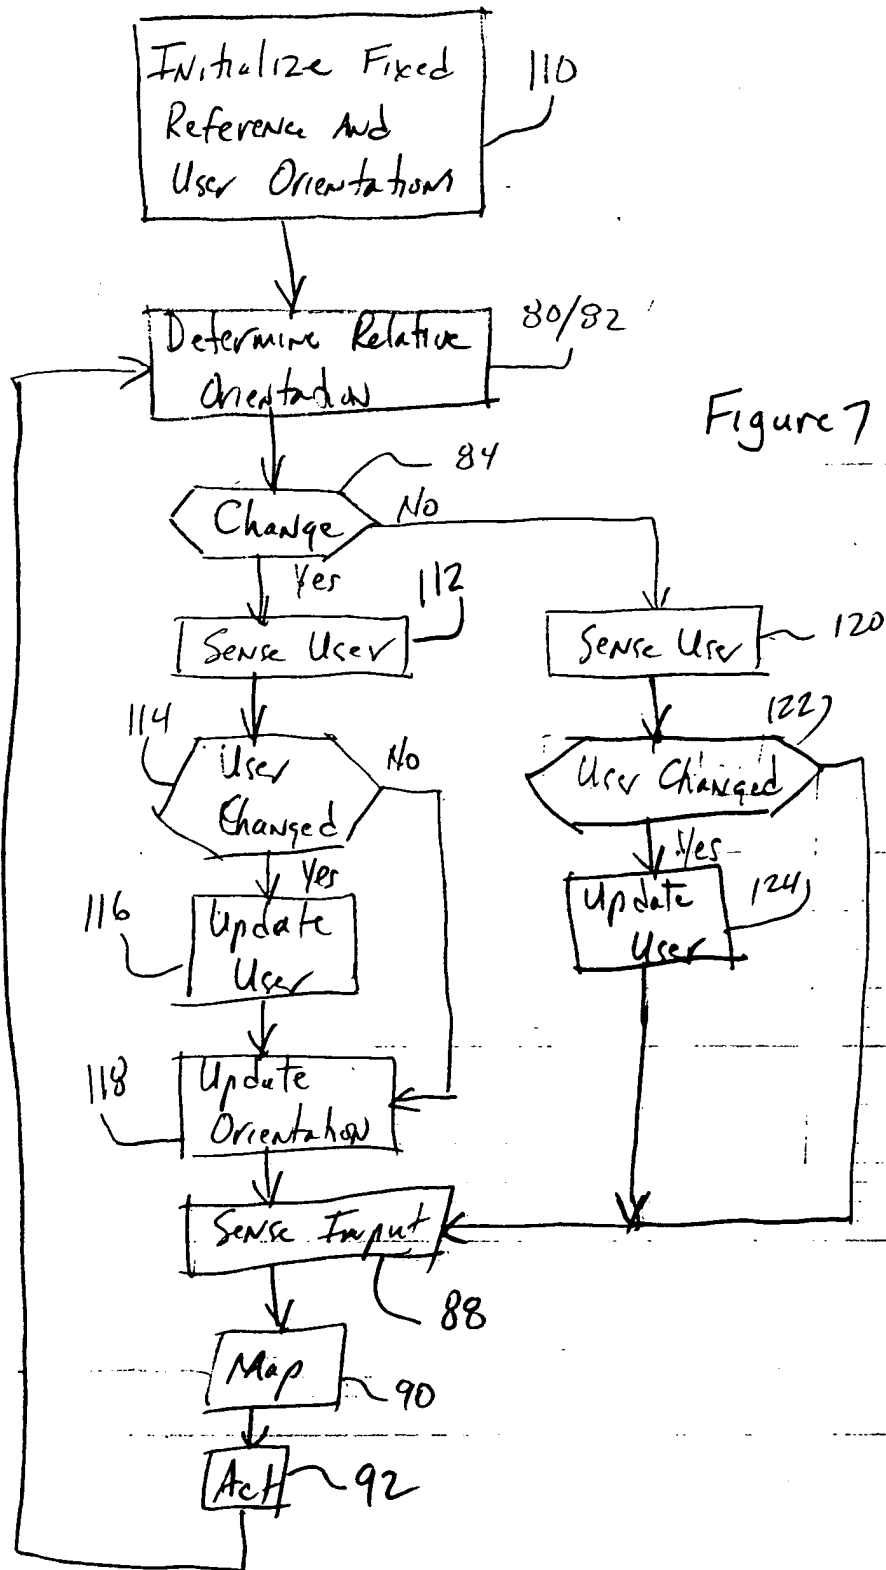 Initialize Fixed
Reference And
User Orientations
110
Determine Relative
Orientation
80/82
Figure 7
84
Change
No
Yes
Sense User
112
Sense User
120
114
User
Changed
No
122
User Changed
Yes
Yes
116
Update
User
Update
User
124
118
Update
Orientation
Sense Input
88
Map
90
Act
92